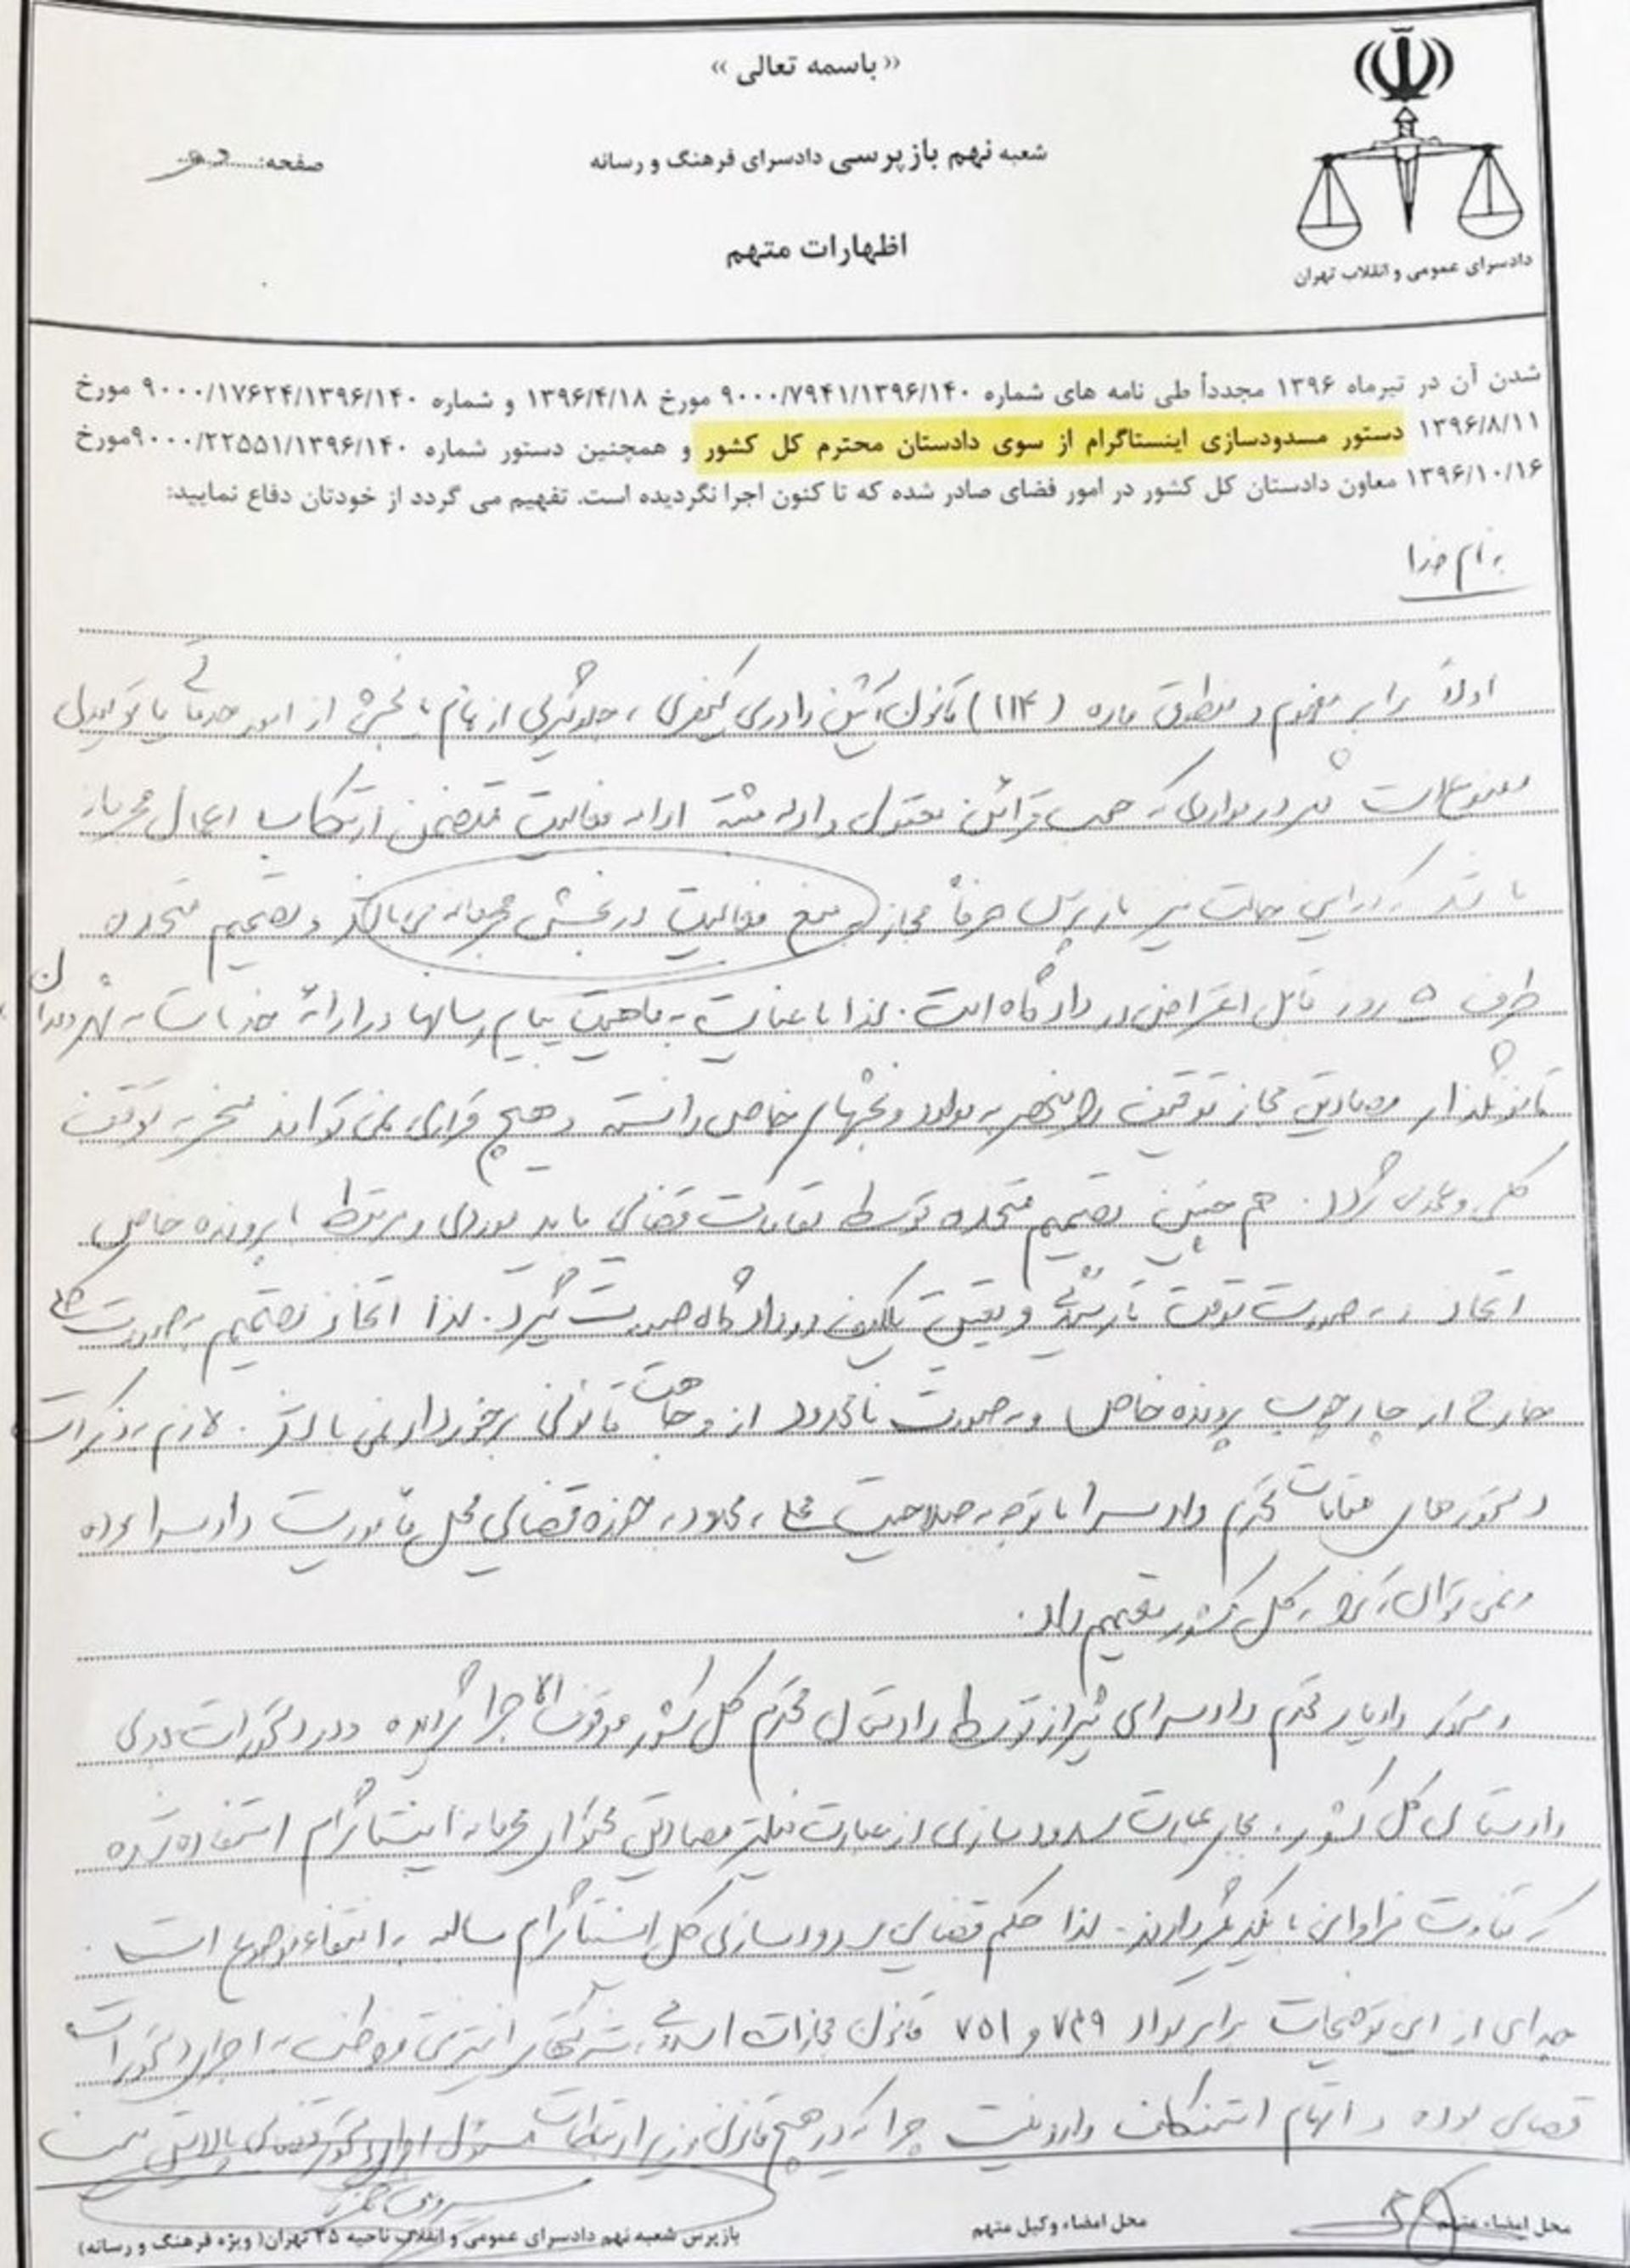 « باسمه تعالی »
شعبه نهم بازپرسی دادسرای فرهنگ و رسانه
صفحه: دو
اظهارات متهم
دادسرای عمومی و انقلاب تهران
شدن آن در تیرماه ۱۳۹۶ مجدداً طی نامه های شماره ۹۰۰۰/۷۹۴۱/۱۳۹۶/۱۴۰ مورخ ۱۳۹۶/۴/۱۸ و شماره ۹۰۰۰/۱۷۶۲۴/۱۳۹۶/۱۴۰ مورخ
۱۳۹۶/۸/۱۱ دستور مسدودسازی اینستاگرام از سوی دادستان محترم کل کشور و همچنین دستور شماره ۹۰۰۰/۲۲۵۵۱/۱۳۹۶/۱۴۰مورخ
۱۳۹۶/۱۰/۱۶ معاون دادستان کل کشور در امور فضای صادر شده که تا کنون اجرا نگردیده است. تفهیم می گردد از خودتان دفاع نمایید:
بنام خدا
اولاً برابر مفهوم و منطوق ماده (۱۱۴) قانون آئین دادرسی کیفری، جلوگیری از تمام یا بخشی از امور خدماتی یا تولیدی
ممنوع است مگر در مواردی که حسب قرائن معقول و ادله مثبته ادامه فعالیت متضمن ارتکاب اعمال مجرمانه
باشد که در این حالت نیز بازپرس صرفاً مجاز به منع فعالیت در بخش مجرمانه می‌باشد و تصمیم متخذه
ظرف ۵ روز قابل اعتراض در دادگاه است. لذا با عنایت به ماهیت پیام رسانها در ارائه خدمات به شهروندان،
قانونگذار مصادیق مجاز توقیف را منحصر به موارد و بخشهای خاص دانسته و هیچ قراری نمی تواند منجر به توقف
کلی و عمومی گردد. هم چنین تصمیم متخذه توسط مقامات قضائی باید موردی و مرتبط با پرونده خاص
اتخاذ و به صورت موقت تا رسیدگی و تعیین تکلیف در دادگاه صورت گیرد. لذا اتخاذ تصمیم به صورت کلی
خارج از چارچوب پرونده خاص و به صورت نامحدود از وجاهت قانونی برخوردار نمی باشد. لازم به ذکر است
دستورهای مقامات محترم دادسرا با توجه به صلاحیت محلی، محدود به حوزه قضائی محل مأموریت دادسرا بوده
و نمی توان آنرا به کل کشور تعمیم داد.
دستور دادیار محترم دادسرای شیراز توسط دادستان محترم کل کشور موقوف الاجرا گردیده و در دستورات بعدی
دادستانی کل کشور، بجای عبارت مسدودسازی از عبارت فیلتر مصادیق محتوای مجرمانه اینستاگرام استفاده شده
که تفاوت فراوانی با یکدیگر دارند. لذا حکم قضایی مسدودسازی کل اینستاگرام سالبه به انتفاء موضوع است.
جدای از این توضیحات برابر مواد ۷۴۹ و ۷۵۱ قانون مجازات اسلامی، شرکتهای اینترنتی موظف به اجرای دستورات
قضایی بوده و اتهام استنکاف وارد نیست چرا که در هیچ قانونی وزیر ارتباطات مسئول اجرای دستور قضایی پالایش نیست
محل امضاء متهم
محل امضاء وکیل متهم
بازپرس شعبه نهم دادسرای عمومی و انقلاب ناحیه ۲۵ تهران( ویژه فرهنگ و رسانه)